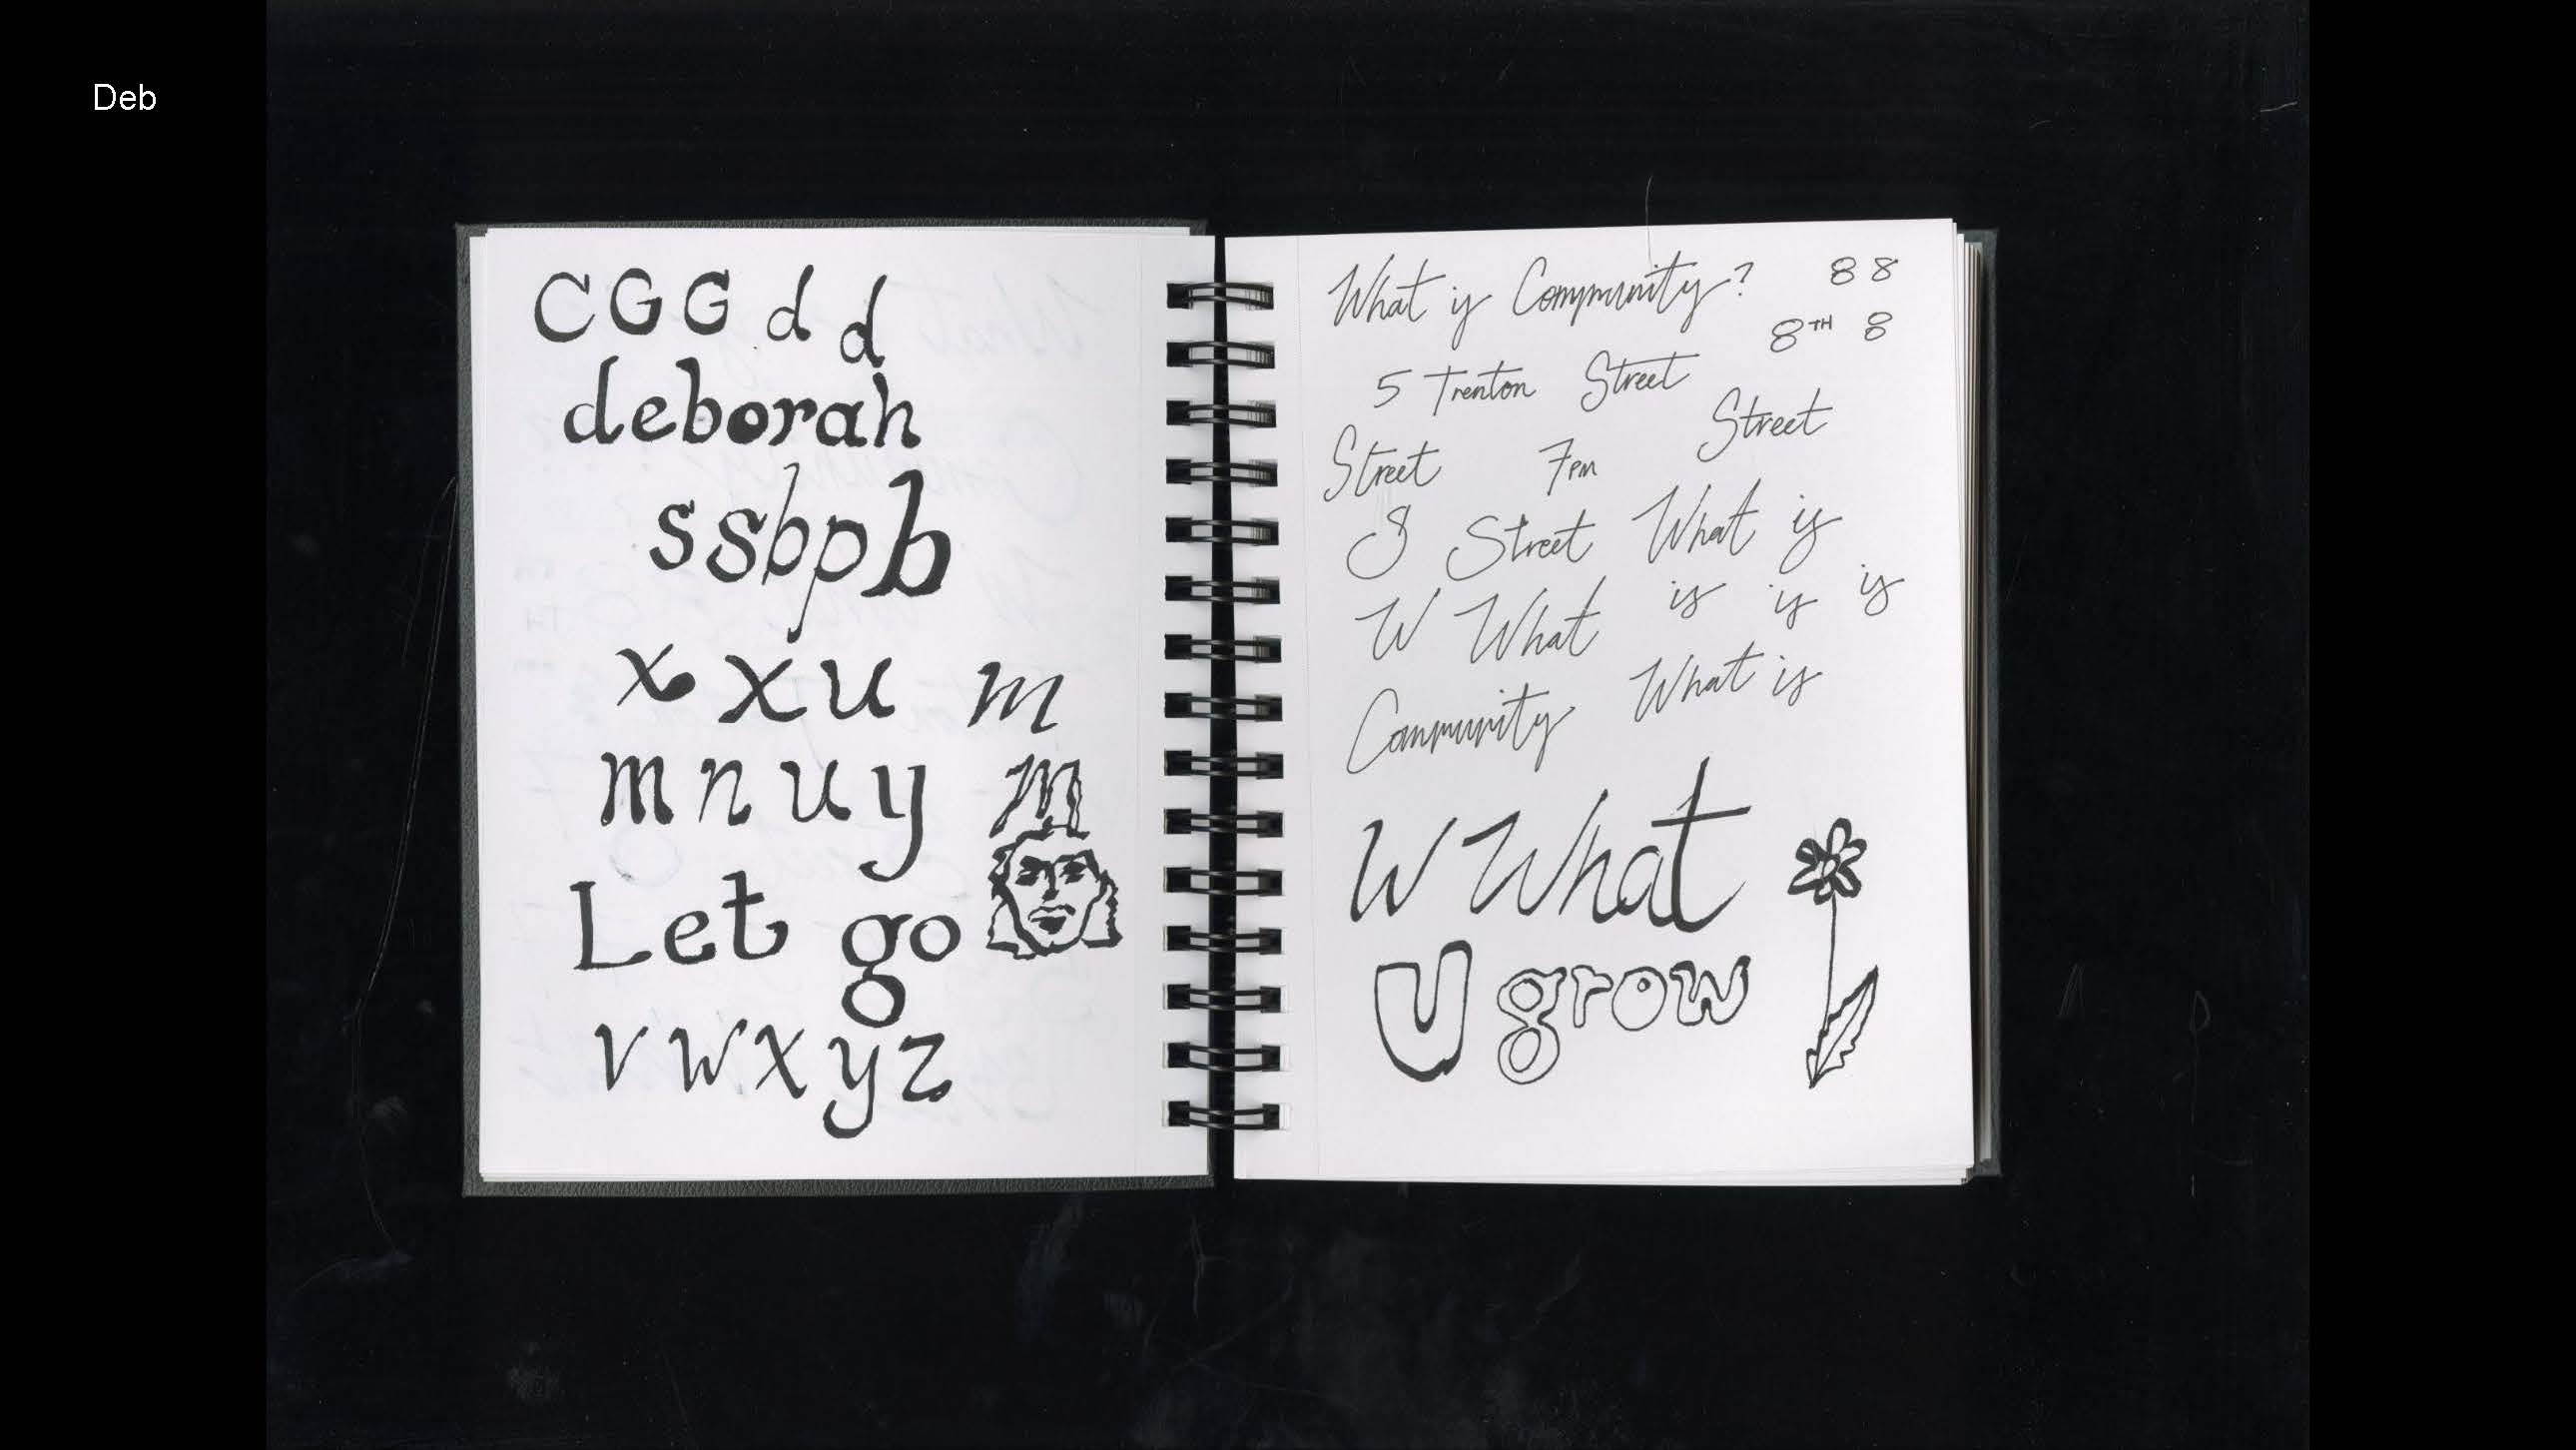 Deb
C G G d d
deborah
s s b p b
x x u m
m n u y m
Let go
v w x y z
What is Community? 8 8
8TH 8
5 Trenton Street
Street 7PM Street
S Street What is
W What is is is
Community What is
W What
U grow